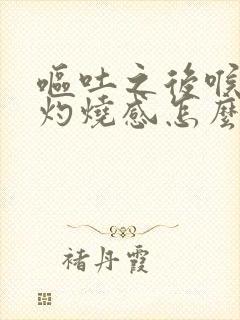 嘔吐之後喉
灼燒感怎麼
褚丹霞